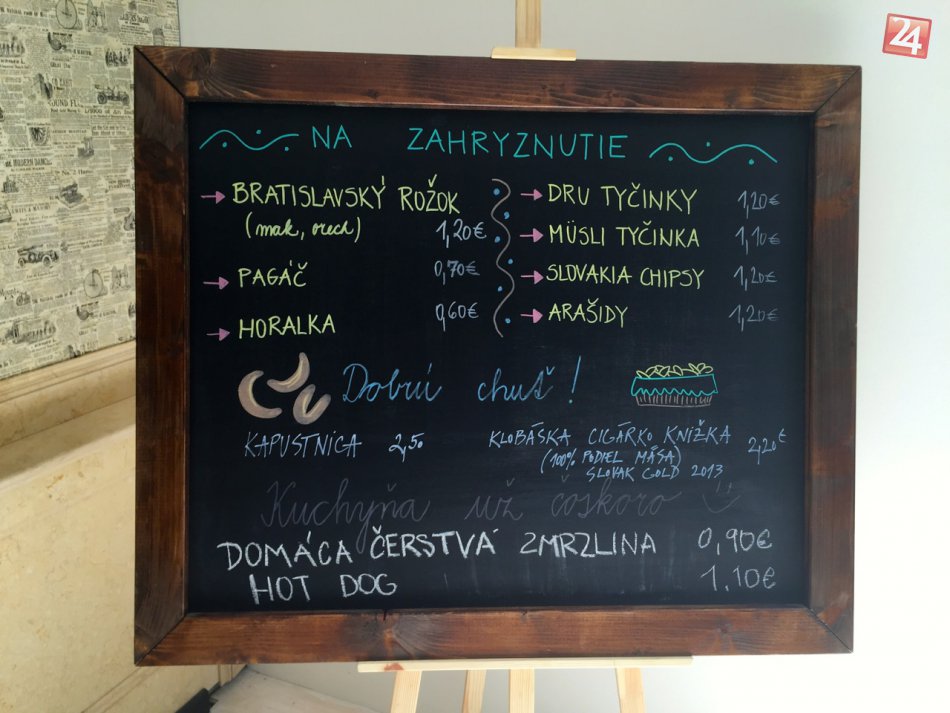 24
NA ZAHRYZNUTIE
BRATISLAVSKÝ ROŽOK
(mak, orech) 1,20€
PAGÁČ 0,70€
HORALKA 0,60€
DRU TYČINKY 1,20€
MÜSLI TYČINKA 1,10€
SLOVAKIA CHIPSY 1,20€
ARAŠIDY 1,20€
Dobrú chuť!
KAPUSTNICA 2,50
KLOBÁSKA CIGÁRKO KNÍŽKA 2,20€
(100% PODIEL MÄSA)
SLOVAK GOLD 2013
Kuchyňa už čoskoro
DOMÁCA ČERSTVÁ ZMRZLINA 0,90€
HOT DOG 1.10€